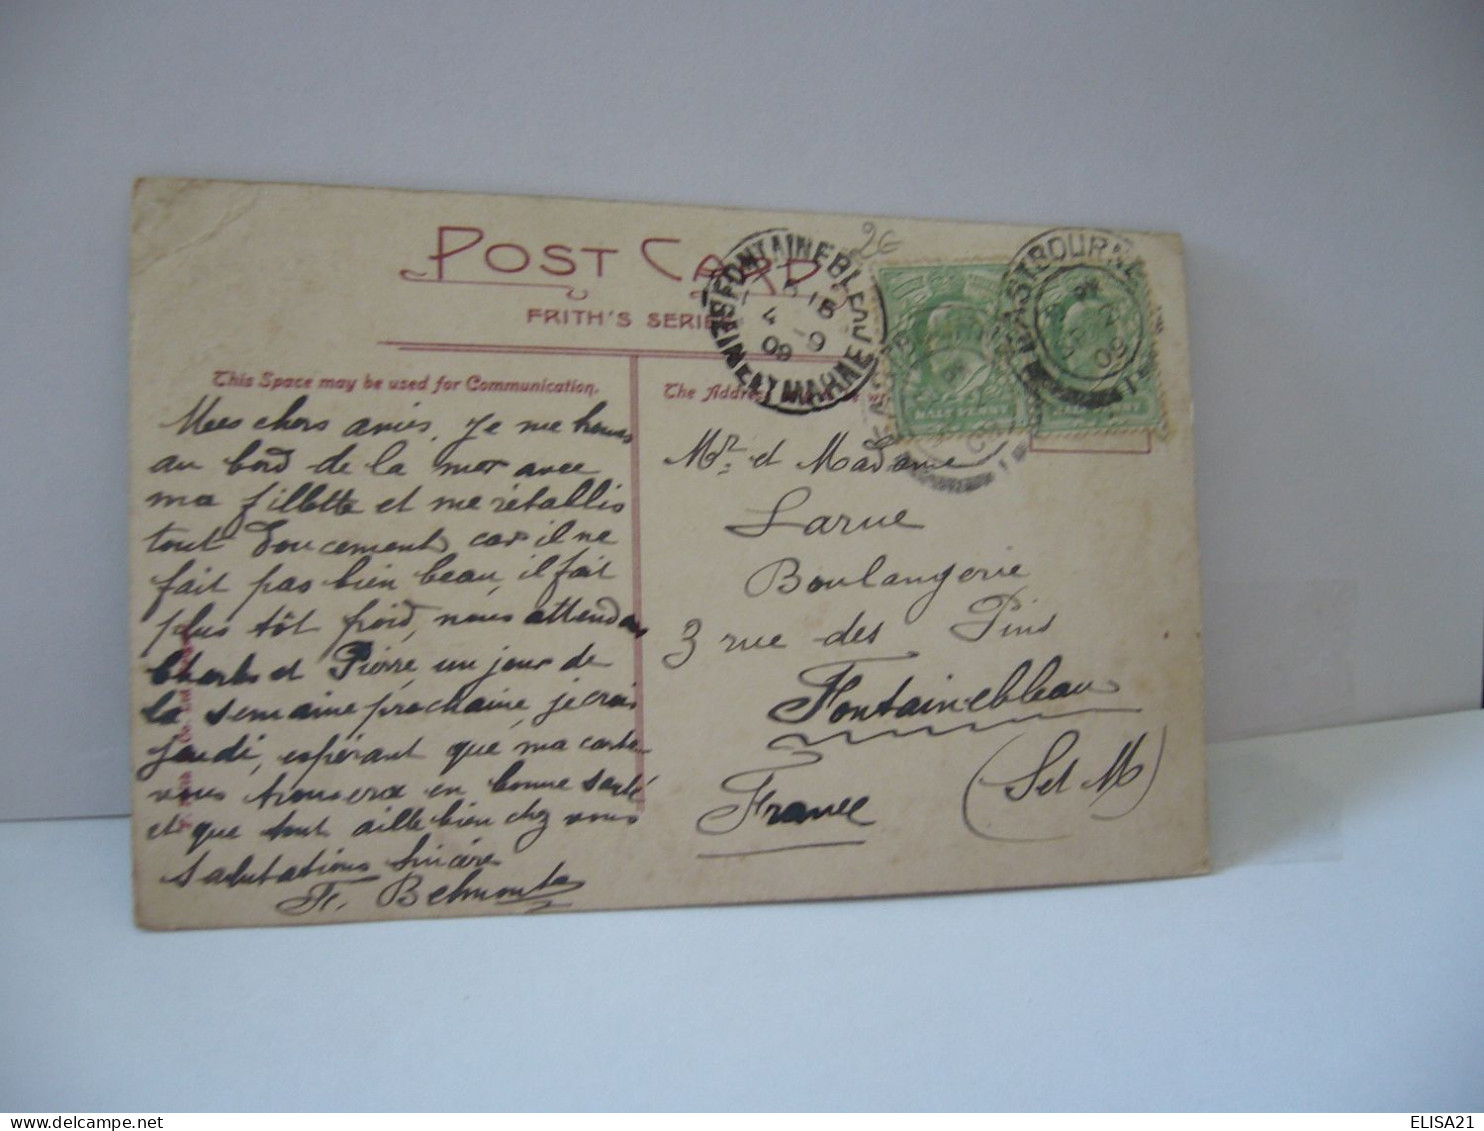 POST CARD
FRITH'S SERIES
This Space may be used for Communication.
The Address
Mes chers amis, Je me trouve
au bord de la mer avec
ma fillette et me rétablis
tout doucement car il ne
fait pas bien beau, il fait
plus tôt froid, nous attendons
Charles et Pierre un jour de
la semaine prochaine, je crois
jeudi, espérant que ma carte
vous trouvera en bonne santé
et que tout aille bien chez vous
salutations sincère
F. Belmonte
Mr. et Madame
Larue
Boulangerie
3 rue des Pins
Fontainebleau
(S et M)
France
FONTAINEBLEAU
SEINE ET MARNE
4 - 9
09
EASTBOURNE
09
HALF PENNY
HALF PENNY
26
ELISA21